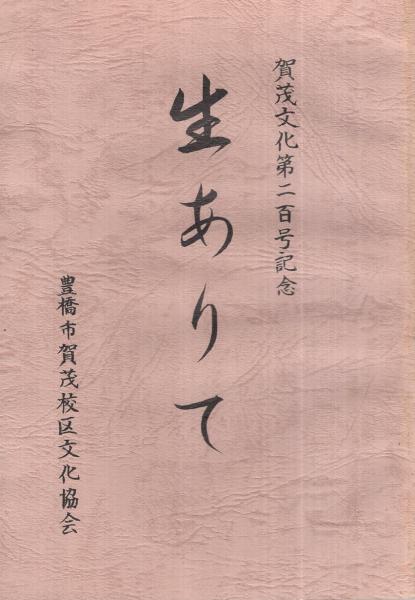 賀茂文化第二百号記念
生ありて
豊橋市賀茂校区文化協会